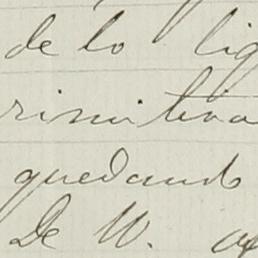 de lo lig
rimitiva
quedando
De W.